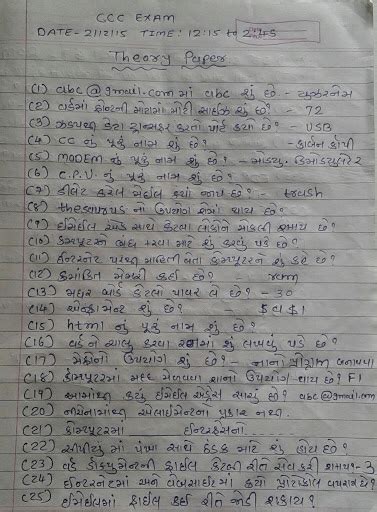 CCC EXAM
DATE-21/12/15 TIME: 12:15 to
Theory Paper
(1) abc@gmail.com માં abc શું છે - યુઝરનેમ
(2) વર્ડમાં ફોન્ટની મોટામાં મોટી સાઈઝ શું છે? - 72
(3) ઝડપથી ડેટા ટ્રાન્સફર કરતો પોર્ટ કયો છે? - USB
(4) CC નું પૂરું નામ શું છે? - કાર્બન કોપી
(5) MODEM નું પૂરું નામ શું છે? - મોડ્યુ. ડિમોડ્યુલેટર
(6) C.P.U. નું પૂરું નામ શું છે?
(7) ડીલીટ કરેલ મેઈલ ક્યાં જાય છે? - trash
(8) thesaurus નો ઉપયોગ શેમાં થાય છે?
(9) ઈમેઈલ એક સાથે કેટલા લોકોને મોકલી શકાય છે?
(10) કોમ્પ્યુટરને બંધ કરવા માટે શું કરવું પડે છે?
(11) ઈન્ટરનેટ પરથી માહિતી લેતા કોમ્પ્યુટરને શું કહે છે?
(12) કાયમી મેમરી કઈ છે? - rom
(13) મધર બોર્ડ કેટલો પાવર લે છે? - 30
(14) એબ્સોલ્યુટ શું છે? - $C$1
(15) html નું પૂરું નામ શું છે?
(16) વર્ડને ચાલુ કરવા રનમાં શું લખવું પડે છે?
(17) મેક્રોનો ઉપયોગ શું છે? - નાનો પ્રોગ્રામ બનાવવા
(18) કોમ્પ્યુટરમાં મદદ મેળવવા શાનો ઉપયોગ થાય છે? F1
(19) આમાંથી કયું ઈમેઈલ એડ્રેસ સાચું છે? abc@gmail.com
(20) નીચેનામાંથી એલાઈમેન્ટનો પ્રકાર નથી.
(21) કોમ્પ્યુટરમાં
(22) સીપીયુ માં પંખા સાથે ઠંડક માટે શું હોય છે?
(23) વર્ડ ડોક્યુમેન્ટની ફાઈલ કેટલી રીતે સેવ કરી શકાય? - 3
(24) ઈન્ટરનેટમાં અને વેબસાઈટમાં કયો પ્રોટોકોલ વપરાય છે?
(25) ઈમેઈલમાં ફાઈલ કઈ રીતે જોડી શકાય?